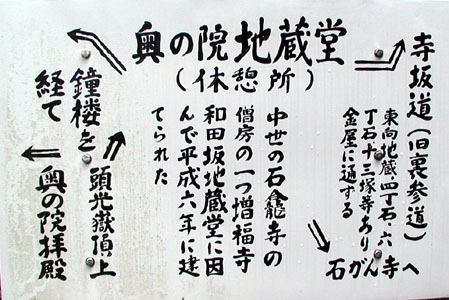 奥の院地蔵堂
(休憩所)
寺坂道(旧裏参道)
東向地蔵四丁石、六
丁石十三塚等あり
金屋に通ずる
石がん寺へ
中世の石龕寺の
僧房の一つ増福寺
和田坂地蔵堂に因
んで平成六年に建
てられた
頭光嶽頂上
鐘楼を
経て
奥の院拝殿